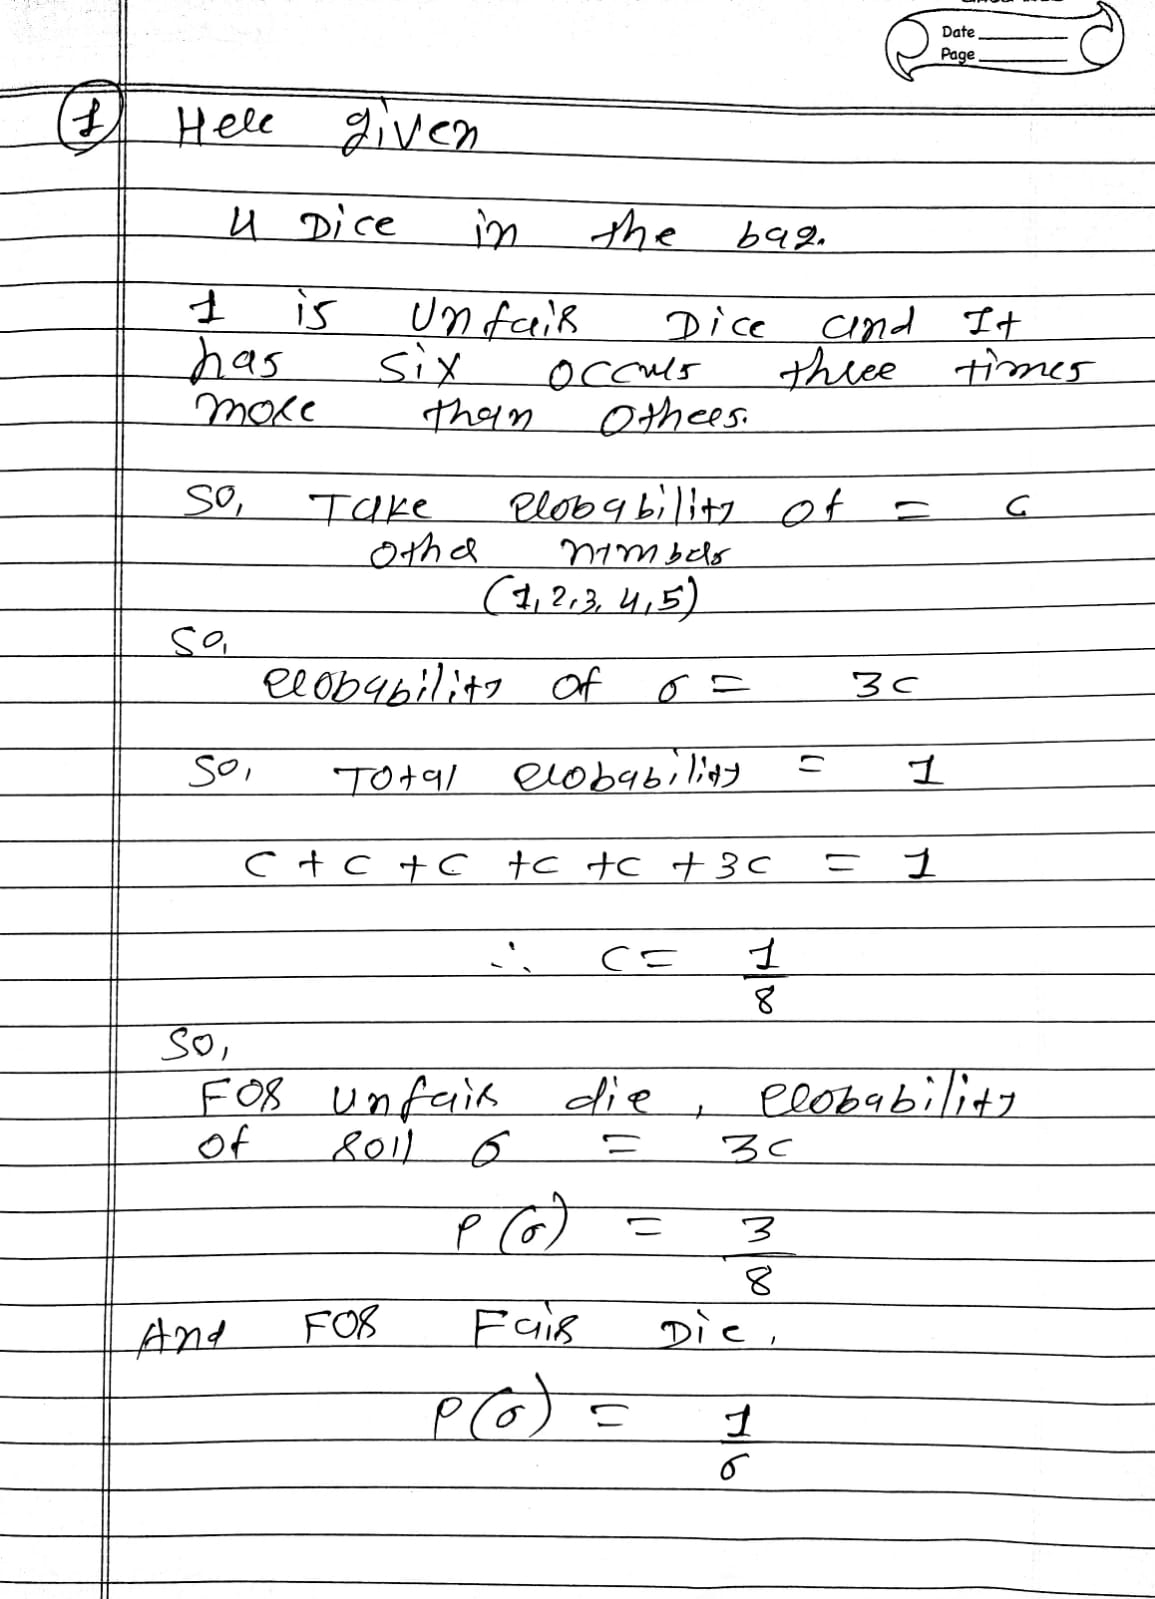 Date
Page
1 Here given
4 Dice in the bag.
1 is Unfair Dice and It
has six occurs three times
more than Others.
So, Take Probability of = c
Other numbers
(1, 2, 3, 4, 5)
So,
Probability of 6 = 3c
So, Total Probability = 1
c + c + c + c + c + 3c = 1
∴ c = 1/8
So,
For unfair die, Probability
of roll 6 = 3c
P(6) = 3/8
And For Fair Die,
P(6) = 1/6